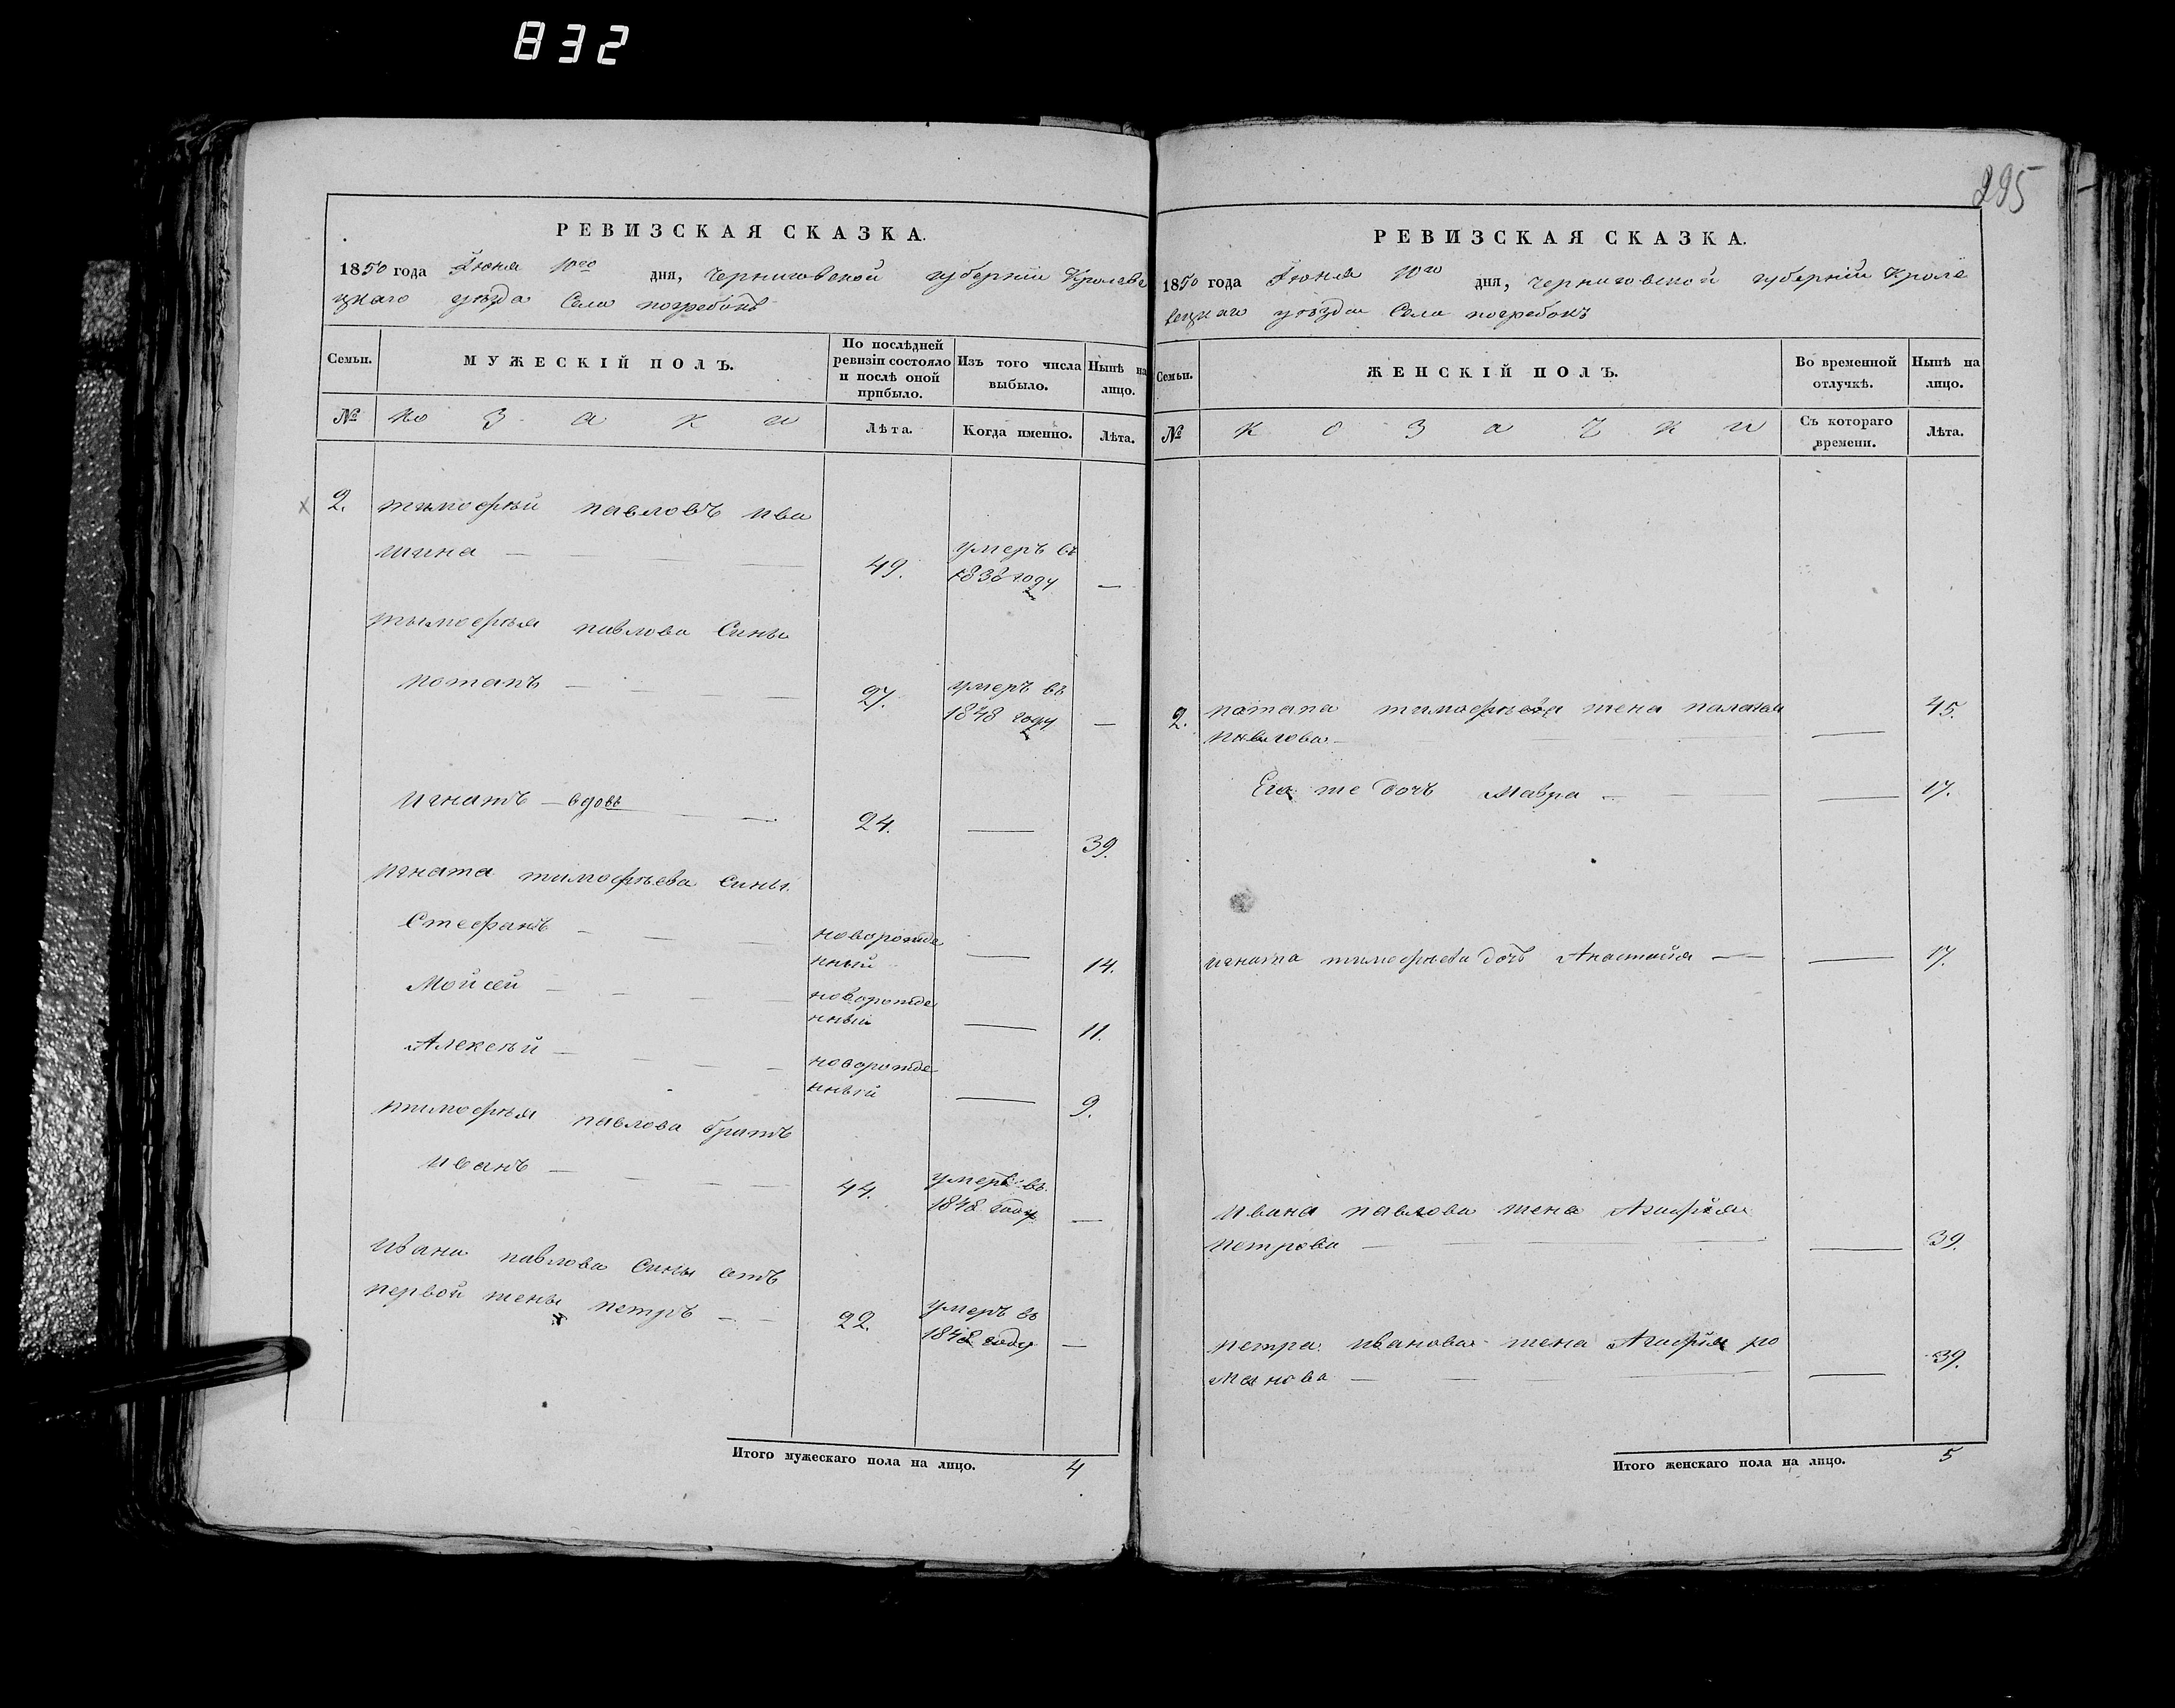 832
295
РЕВИЗСКАЯ СКАЗКА.
1850 года Іюня 10го дня, Черниговской губерніи Кролеве
цкаго уѣзда Села погребокъ
Семьи.
МУЖЕСКІЙ ПОЛЪ.
По послѣдней
ревизіи состояло
и послѣ оной
прибыло.
Изъ того числа
выбыло.
Нынѣ на
лицо.
№
козаки
Лѣта.
Когда именно.
Лѣта.
2. тимофѣй павловъ ива
шина — 49. умеръ въ
1838 году —
тимофѣя павлова Сины
потапъ — 27. умеръ въ
1848 году —
игнатъ — вдовъ 24. — 39.
игната тимофѣева сины
Стефанъ — новорожде
нный — 14.
Мойсей — новорожде
нный — 11.
Алексѣй — новорожде
нный — 9.
тимофѣя павлова братъ
иванъ — 44. умеръ въ
1848 году —
ивана павлова сины отъ
первой жены петръ — 22. умеръ въ
1848 году —
Итого мужескаго пола на лицо. 4
РЕВИЗСКАЯ СКАЗКА.
1850 года Іюня 10го дня, черниговской губерніи Кроле
вецкаго уѣзда Села погребокъ
Семьи.
ЖЕНСКІЙ ПОЛЪ.
Во временной
отлучкѣ.
Нынѣ на
лицо.
№
козачки
Съ котораго
времени.
Лѣта.
2. потапа тимофѣева жена палагея 45.
павлова — —
Его же дочъ Мавра — — 17.
игната тимофѣева дочъ Анастасія — — 17.
ивана павлова жена Агафія
петрова — — 39.
петра иванова жена Агафія ро
манова — — 39.
Итого женскаго пола на лицо. 5